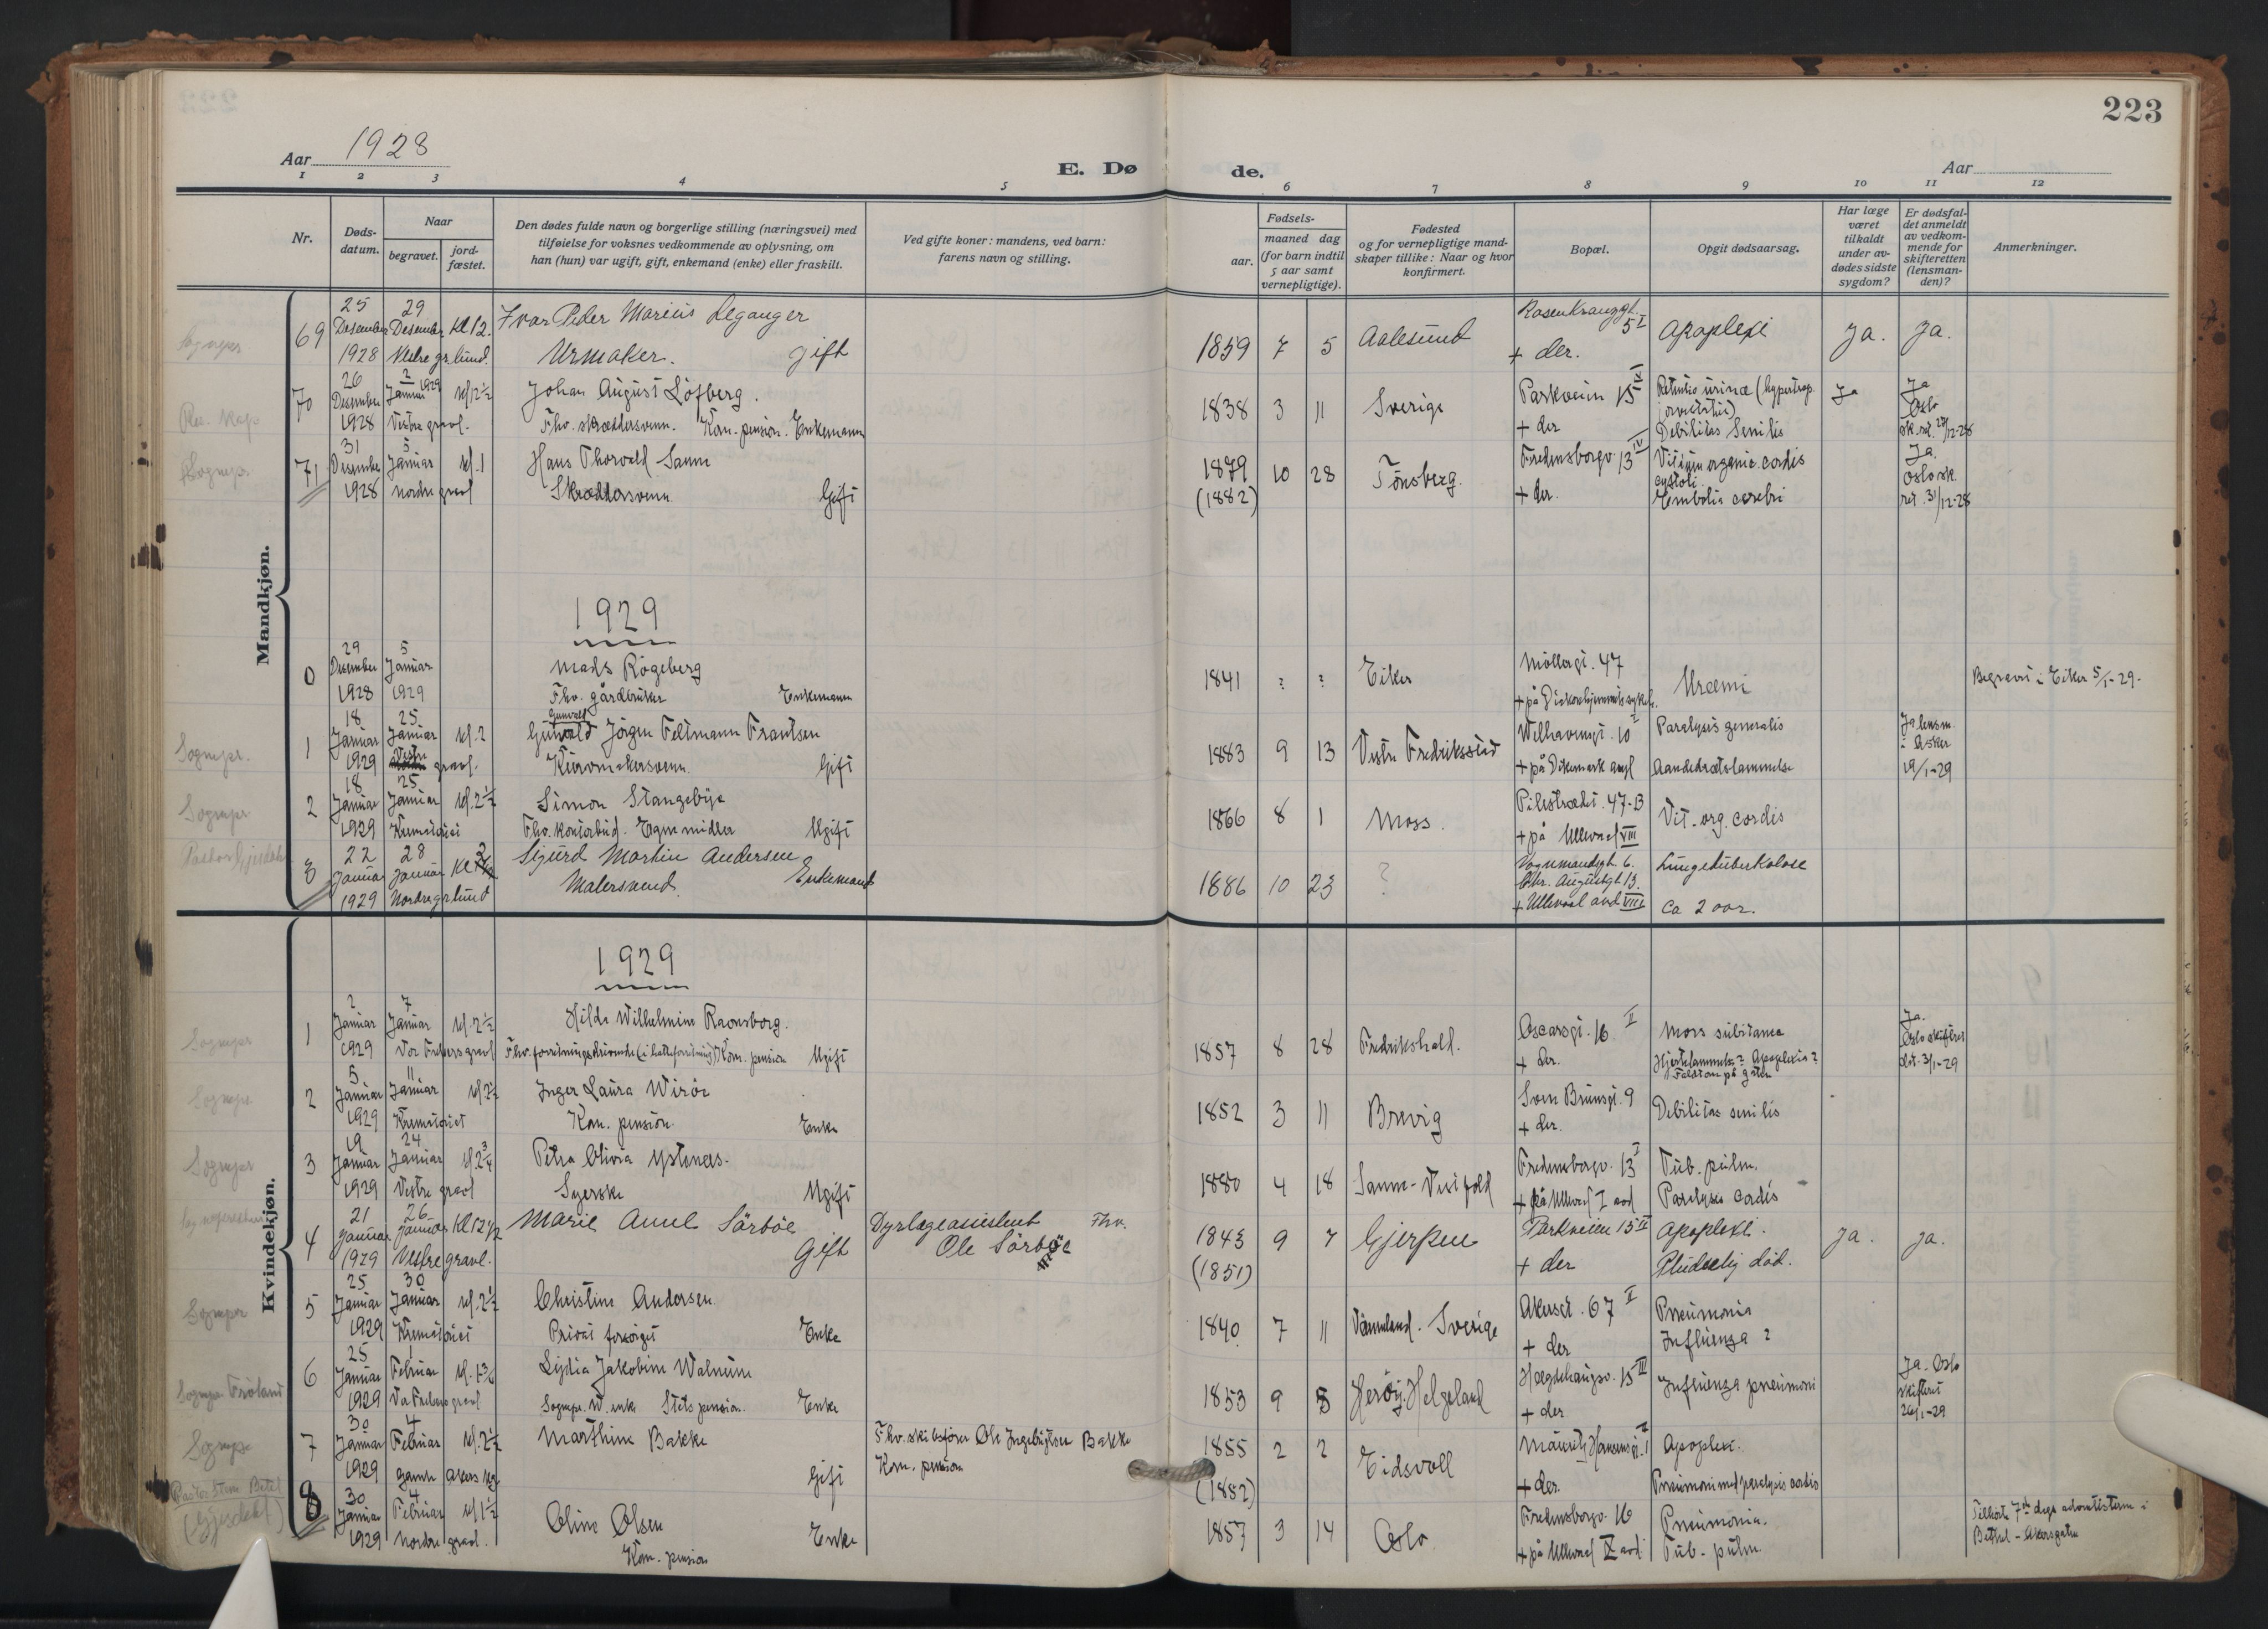 223
Aar 1928
E. Dø de.
Aar
1 2 3 4 5 6 7 8 9 10 11 12
Nr.
Døds-
datum.
Naar
begravet.
jord-
fæstet.
Den dødes fulde navn og borgerlige stilling (næringsvei) med
tilføielse for voksnes vedkommende av oplysning, om
han (hun) var ugift, gift, enkemand (enke) eller fraskilt.
Ved gifte koner: mandens, ved barn:
farens navn og stilling.
Fødsels-
aar.
maaned dag
(for barn indtil
5 aar samt
vernepligtige).
Fødested
og for vernepligtige mand-
skaper tillike: Naar og hvor
konfirmert.
Bopæl.
Opgit dødsaarsag.
Har læge
været
tilkaldt
under av-
dødes sidste
sygdom?
Er dødsfal-
det anmeldt
av vedkom-
mende for
skifteretten
(lensman-
den)?
Anmerkninger.
Mandkjøn.
69
25 Desember 1928
29 Desember Kl 12.
Vestre gr.lund.
Ivar Peder Marius Leganger
Urmaker. gift
1859 7 5 Aalesund
Rosenkrantzgt. 5 I
+ der.
Apoplexi
Ja. Ja.
70
26 Desember 1928
2 Januar 1929 kl 12½
Vestre gravl.
Johan August Löfberg.
Fhv. skræddersvenn. Kom. pension. Enkemann
1838 3 11 Sverige
Parkveien 15 IV
+ der
Retentio urinæ (hypertrop.
Debilitas Senilis
Ja
Ja
Oslo
sk.ret. 27/12-28
71
31 Desember 1928
5 Januar kl. 1
nordre gravl
Hans Thorvald Sanne
Skræddersvenn. Gift
1879 10 28 Tönsberg.
(1882)
Fredensborgv. 13 IV
+ der.
Vitium organic. cordis
systoli.
Embolia cerebri
Ja.
Oslo sk.
ret. 31/12-28
1929
0
29 Desember 1928
5 Januar 1929
Mads Rögeberg
Fhv. gårdbruker Enkemann
1841 ? ? Eiker
Möllergt. 47
+ på Diakonhjemmets sykeh.
Uræmi
Begravet i Eiker 5/1-29.
Sognepr.
1
18 Januar 1929
25 Januar kl. 2
Vestre gravl.
Gunvald
Gunvald Jörgen Feltmann Frantsen
Kurvmakersvenn. Gift
1883 9 13 Vestre Fredrikstad
Welhavensgt. 10 I
+ på Dikemark asyl
Paralysis generalis
Aandedrætslammelse
Ja lensm.
i Asker
19/1-29
Sognepr
2
18 Januar 1929
25 Januar kl. 2½
Krematoriet
Simon Stangebye
Fhv. kontorbud. Egne midler Ugift
1866 8 1 Moss.
Pilestrædet. 47-B
+ på Ullevaal VIII
Vit. org. cordis
3
22 Januar 1929
28 Januar
Nordre gr.lund
Sigurd Martin Andersen
Malersvend. Enkemand
1886 10 23 ?
Vognmandsgt. 6.
Chr. Augustgt 13.
+ Ullevaal avd VIII
Lungetuberkolose
ca 2 aar.
Kvindekjøn.
1929
Sognepr
1
2 Januar 1929
7 Januar kl. 2½
Vor Frelsers gravl
Hilda Wilhelmine Ravnsborg.
Fhv. forretningsdrivende (i hatteforretning) Kom. pension Ugift
1857 8 28 Fredrikshald.
Oscarsgt. 16 II
+ der.
Mors subitanea
Hjertelammelse? Apoplexia?
Ja.
Oslo skifteret
3/1-29
Sognepr
2
5 Januar 1929
11 Januar kl 2½
Krematoriet
Inger Laura Wiröe
Kom. pension. Enke
1852 3 11 Brevig
Sven Brunsgt. 9
+ der.
Debilitas senilis
Sognepr
3
19 Januar 1929
24 Januar kl 2¾
Vestre gravl
Petra Olivia Ystenæs.
Syerske Ugift
1880 4 18 Sanne-Vestfold
Fredensborgv. 13 I
+ på Ullevaal I avd
Tub. pulm.
Paralysis cordis
4
21 Januar 1929
26 Januar Kl 12½
Vestre gravl.
Marie Anne Sörböe
Gift
Dyrlægeassistent Fhv.
Ole Sörböe
1843 9 7 Gjerpen
(1851)
Parkveien 15 II
+ der
Apoplexi.
Pludselig död.
Ja. Ja.
Sognepr
5
25 Januar 1929
30 Januar kl. 2½
Krematoriet
Christine Andersen
Privat forsörget Enke
1840 7 11 Värmland. Sverige
Akersgt. 67 II
+ der
Pneumonia
Influenza ?
Sognepr Fröland
6
25 Januar 1929
1 Februar
Vor Frelsers gravl
Lydia Jakobine Walnum
Sognepr. W. enke Stats pension. Enke
1853 9 5 Heröy. Helgeland
Hægdehaugsv. 15 III
+ der
Influenza pneumoni
Ja. Oslo
skifteret
26/1-29
Sognepr
7
30 Januar 1929
4 Februar kl. 2½
Gamle Akers kg
Marthine Bakke
Gift
Fhv. skibsförer Ole Ingebrigtsen Bakke
Kom. pension
1855 2 2 Eidsvoll
(1852)
Mauritz Hansensgt. 1
+ der.
Apoplexi.
Pneumoni med paralysis cordis
8
30 Januar 1929
4 Februar kl 1½
nordre gravl.
Oline Olsen Enke
Kom. pension
1857 3 14 Oslo
Fredensborgv. 16
+ på Ullevaal IX avd.
Pneumonia.
Tub. pulm.
Tilhörte 7de dags adventisterne i
Bethel - Akersgaten